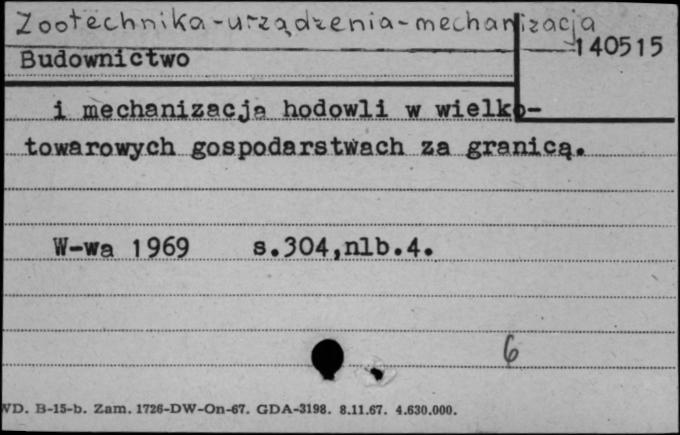 Zootechnika-urządzenia-mechanizacja
140515
Budownictwo
i mechanizacja hodowli w wielko-
towarowych gospodarstwach za granicą.
W-wa 1969 s.304,nlb.4.
6
WD. B-15-b. Zam. 1726-DW-On-67. GDA-3198. 8.11.67. 4.630.000.